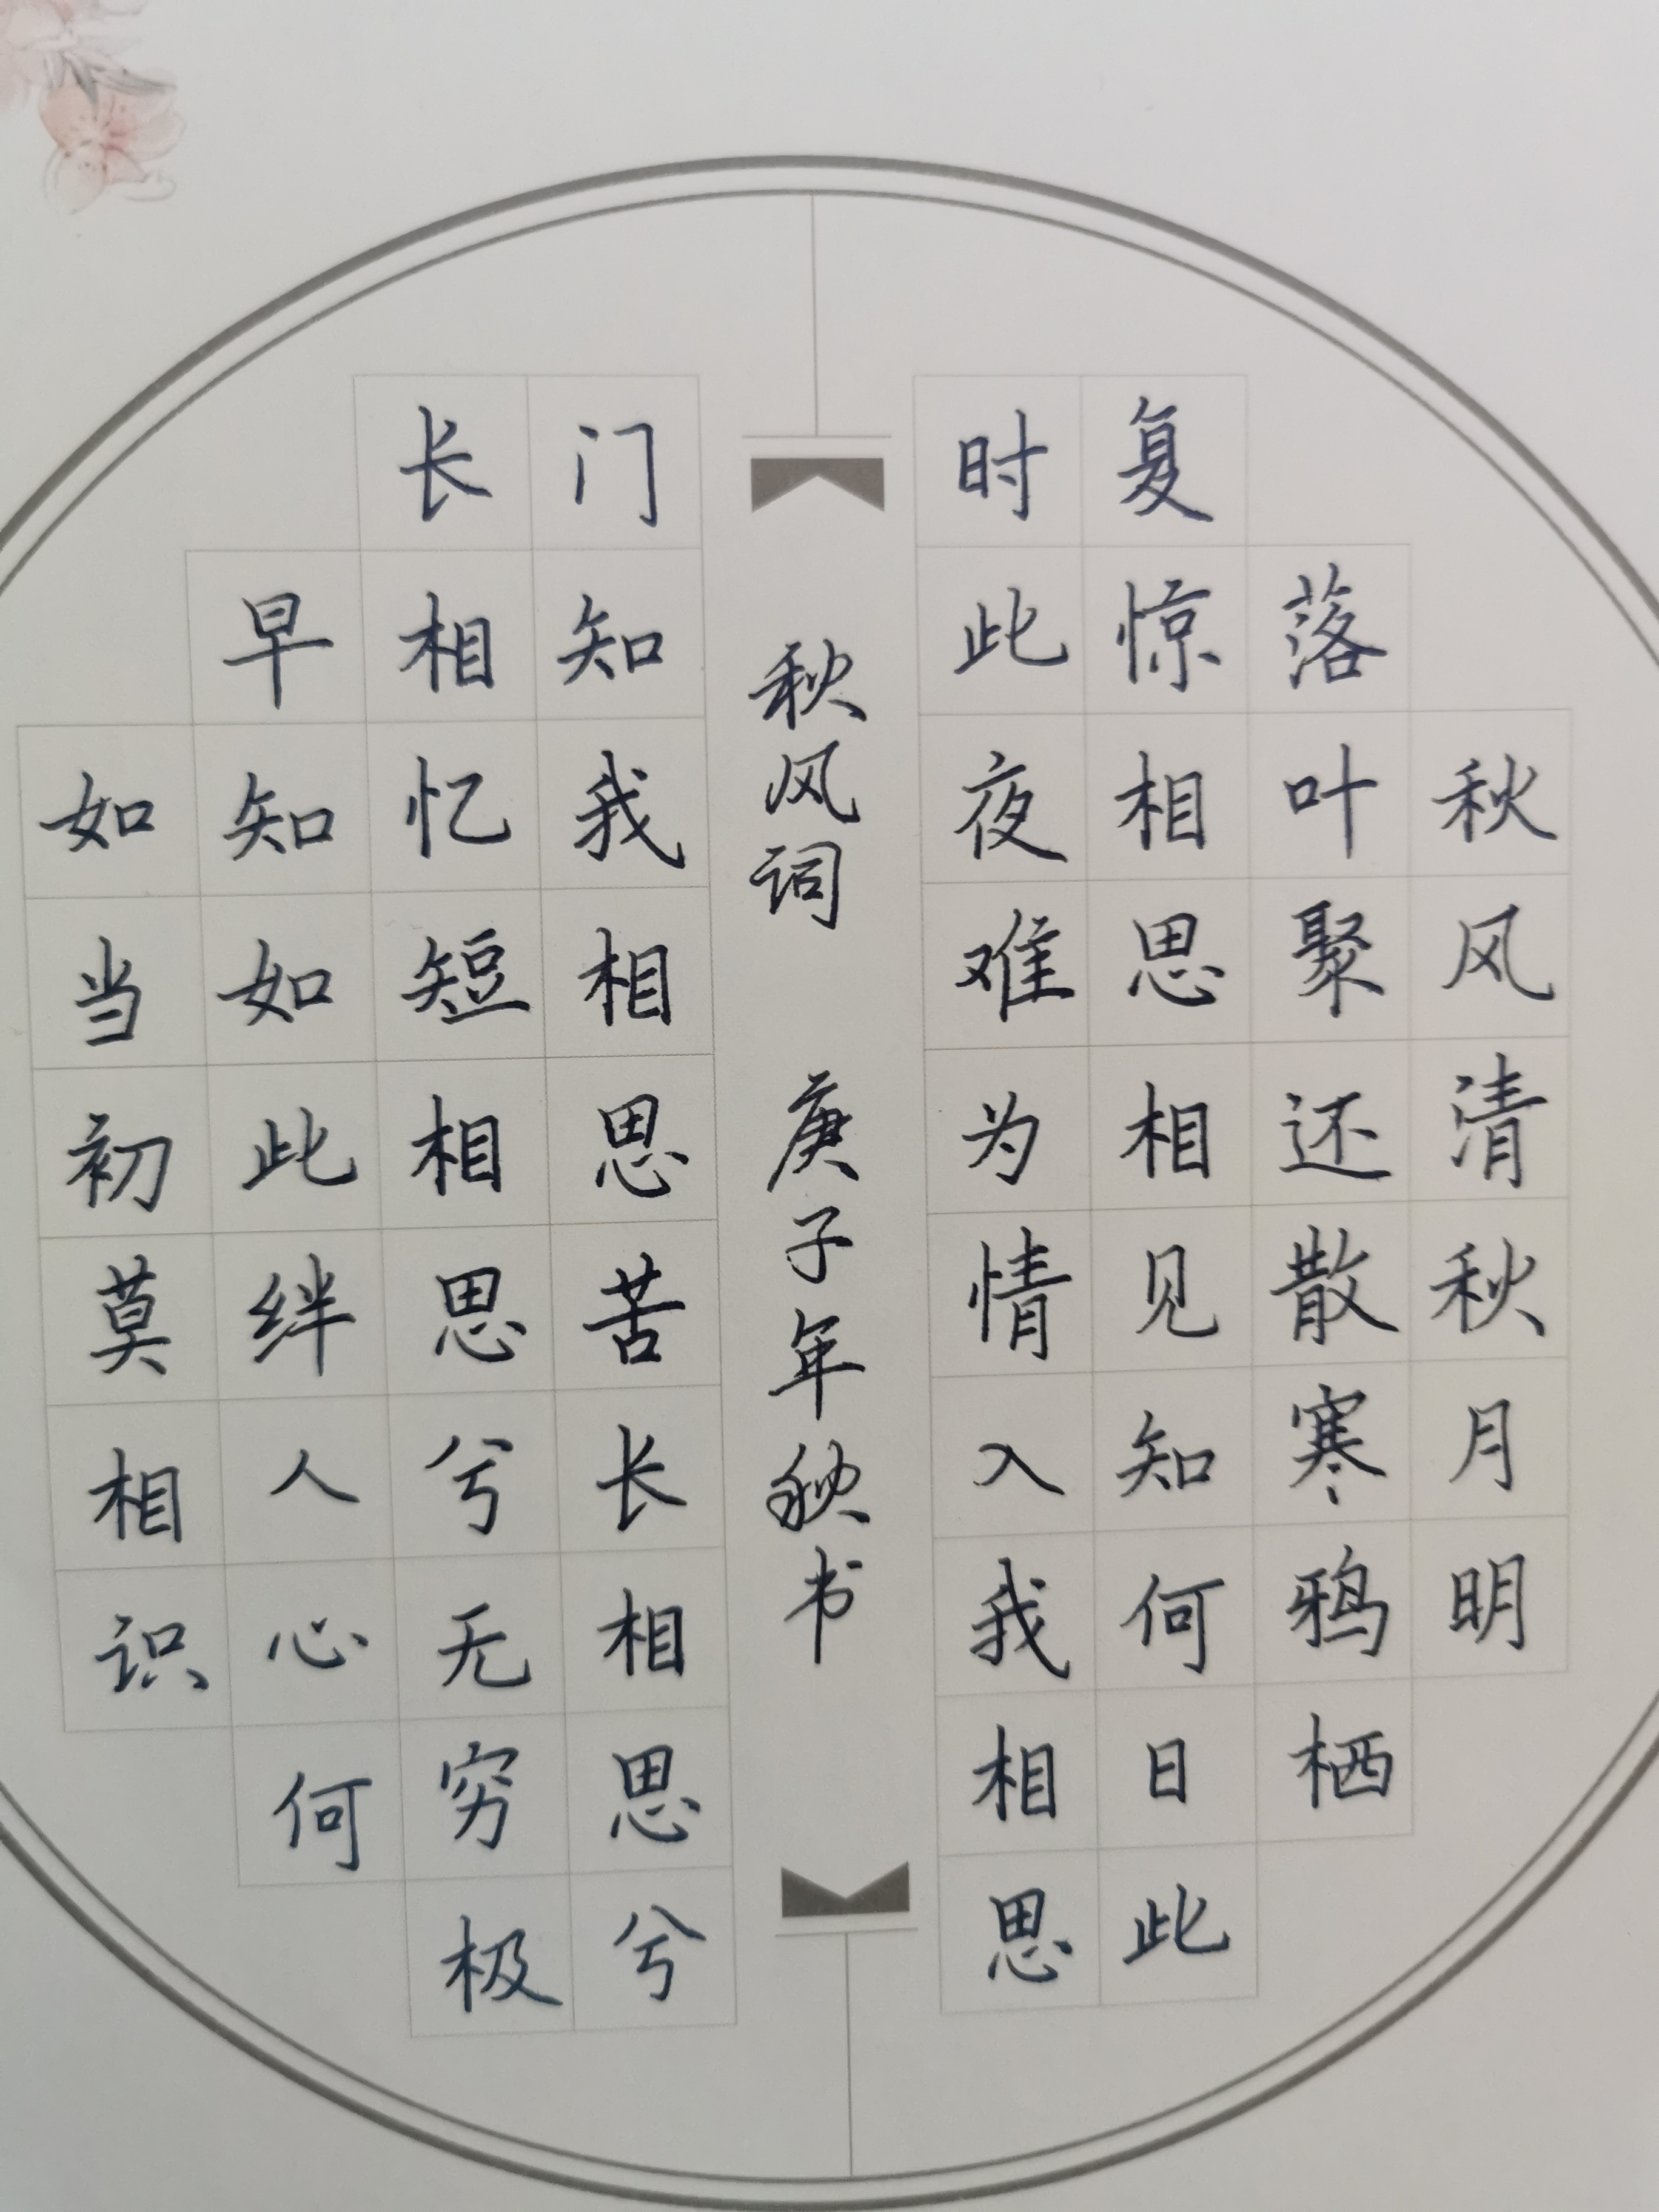 秋风清秋月明
落叶聚还散寒鸦栖
复惊相思相见知何日此
时此夜难为情入我相思
秋风词 庚子年秋书
门知我相思苦长相思兮
长相忆短相思兮无穷极
早知如此绊人心何
如当初莫相识